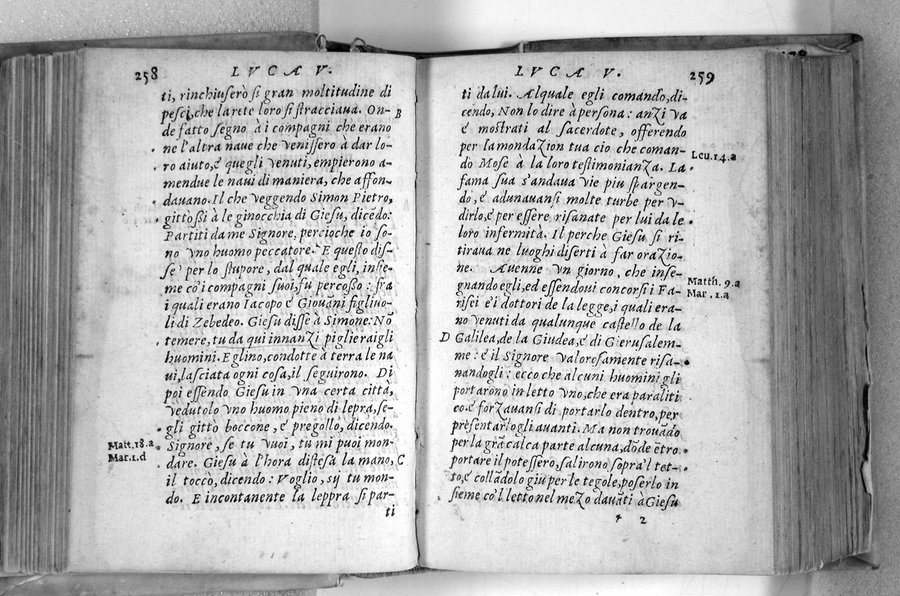 258
LVCA V.
ti, rinchiuserò si gran moltitudine di
pesci, che la rete loro si stracciaua. On-
B
de fatto segno à i compagni che erano
ne l'altra naue che venissero à dar lo-
ro aiuto, è quegli venuti, empierono a-
mendue le naui di maniera, che affon-
dauano. Il che veggendo Simon Pietro,
gittoßi à le ginocchia di Giesu, dicẽdo:
Partiti da me Signore, percioche io so-
no vno huomo peccatore. E questo dis-
se per lo stupore, dal quale egli, insie-
me co i compagni suoi, fu percoßo: fra
i quali erano Iacopo è Giouãni figliuo-
li di Zebedeo. Giesu disse à Simone: Nõ
temere, tu da qui innanzi piglieraigli
huomini. Eglino, condotte à terra le na
ui, lasciata ogni cosa, il seguirono. Di
poi essendo Giesu in vna certa città,
vedutolo vno huomo pieno di lepra, se-
gli gitto boccone, è pregollo, dicendo.
Matt. 18. a
Signore, se tu vuoi, tu mi puoi mon-
Mar. 1. d
dare. Giesu à l'hora distesa la mano,
C
il toccò, dicendo: Voglio, sij tu mon-
do. E incontanente la leppra si par-
ti
LVCA V.
259
ti da lui. Alquale egli comando, di-
cendo, Non lo dire à persona: anzi va
è mostrati al sacerdote, offerendo
per la mondazion tua cio che coman-
Leu. 14. a
do Mose à la loro testimonianza. La
fama sua s'andaua vie piu spargen-
do, è adunauansi molte turbe per v-
dirlo, è per essere risanate per lui da le
loro infermità. Il perche Giesu si ri-
tiraua ne luoghi diserti à far orazio-
ne. Auenne vn giorno, che inse-
Matth. 9. a
gnando egli, ed essendoui concorsi i Fa-
Mar. 1. a
risei è i dottori de la legge, i quali era-
no venuti da qualunque castello de la
D
Galilea, de la Giudea, è di Gierusalem-
me: è il Signore valorosamente risa-
nandogli: ecco che alcuni huomini gli
portarono in letto vno, che era paraliti
co. è forzauansi di portarlo dentro, per
presentar logli auanti. Ma non trouãdo
per la grã calca parte alcuna, dõde ẽtro
portare il potessero, salirono sopra'l tet-
to, è collãdolo giu per le tegole, poserlo in
sieme co'l letto nel mezo dauãti à Giesu
2